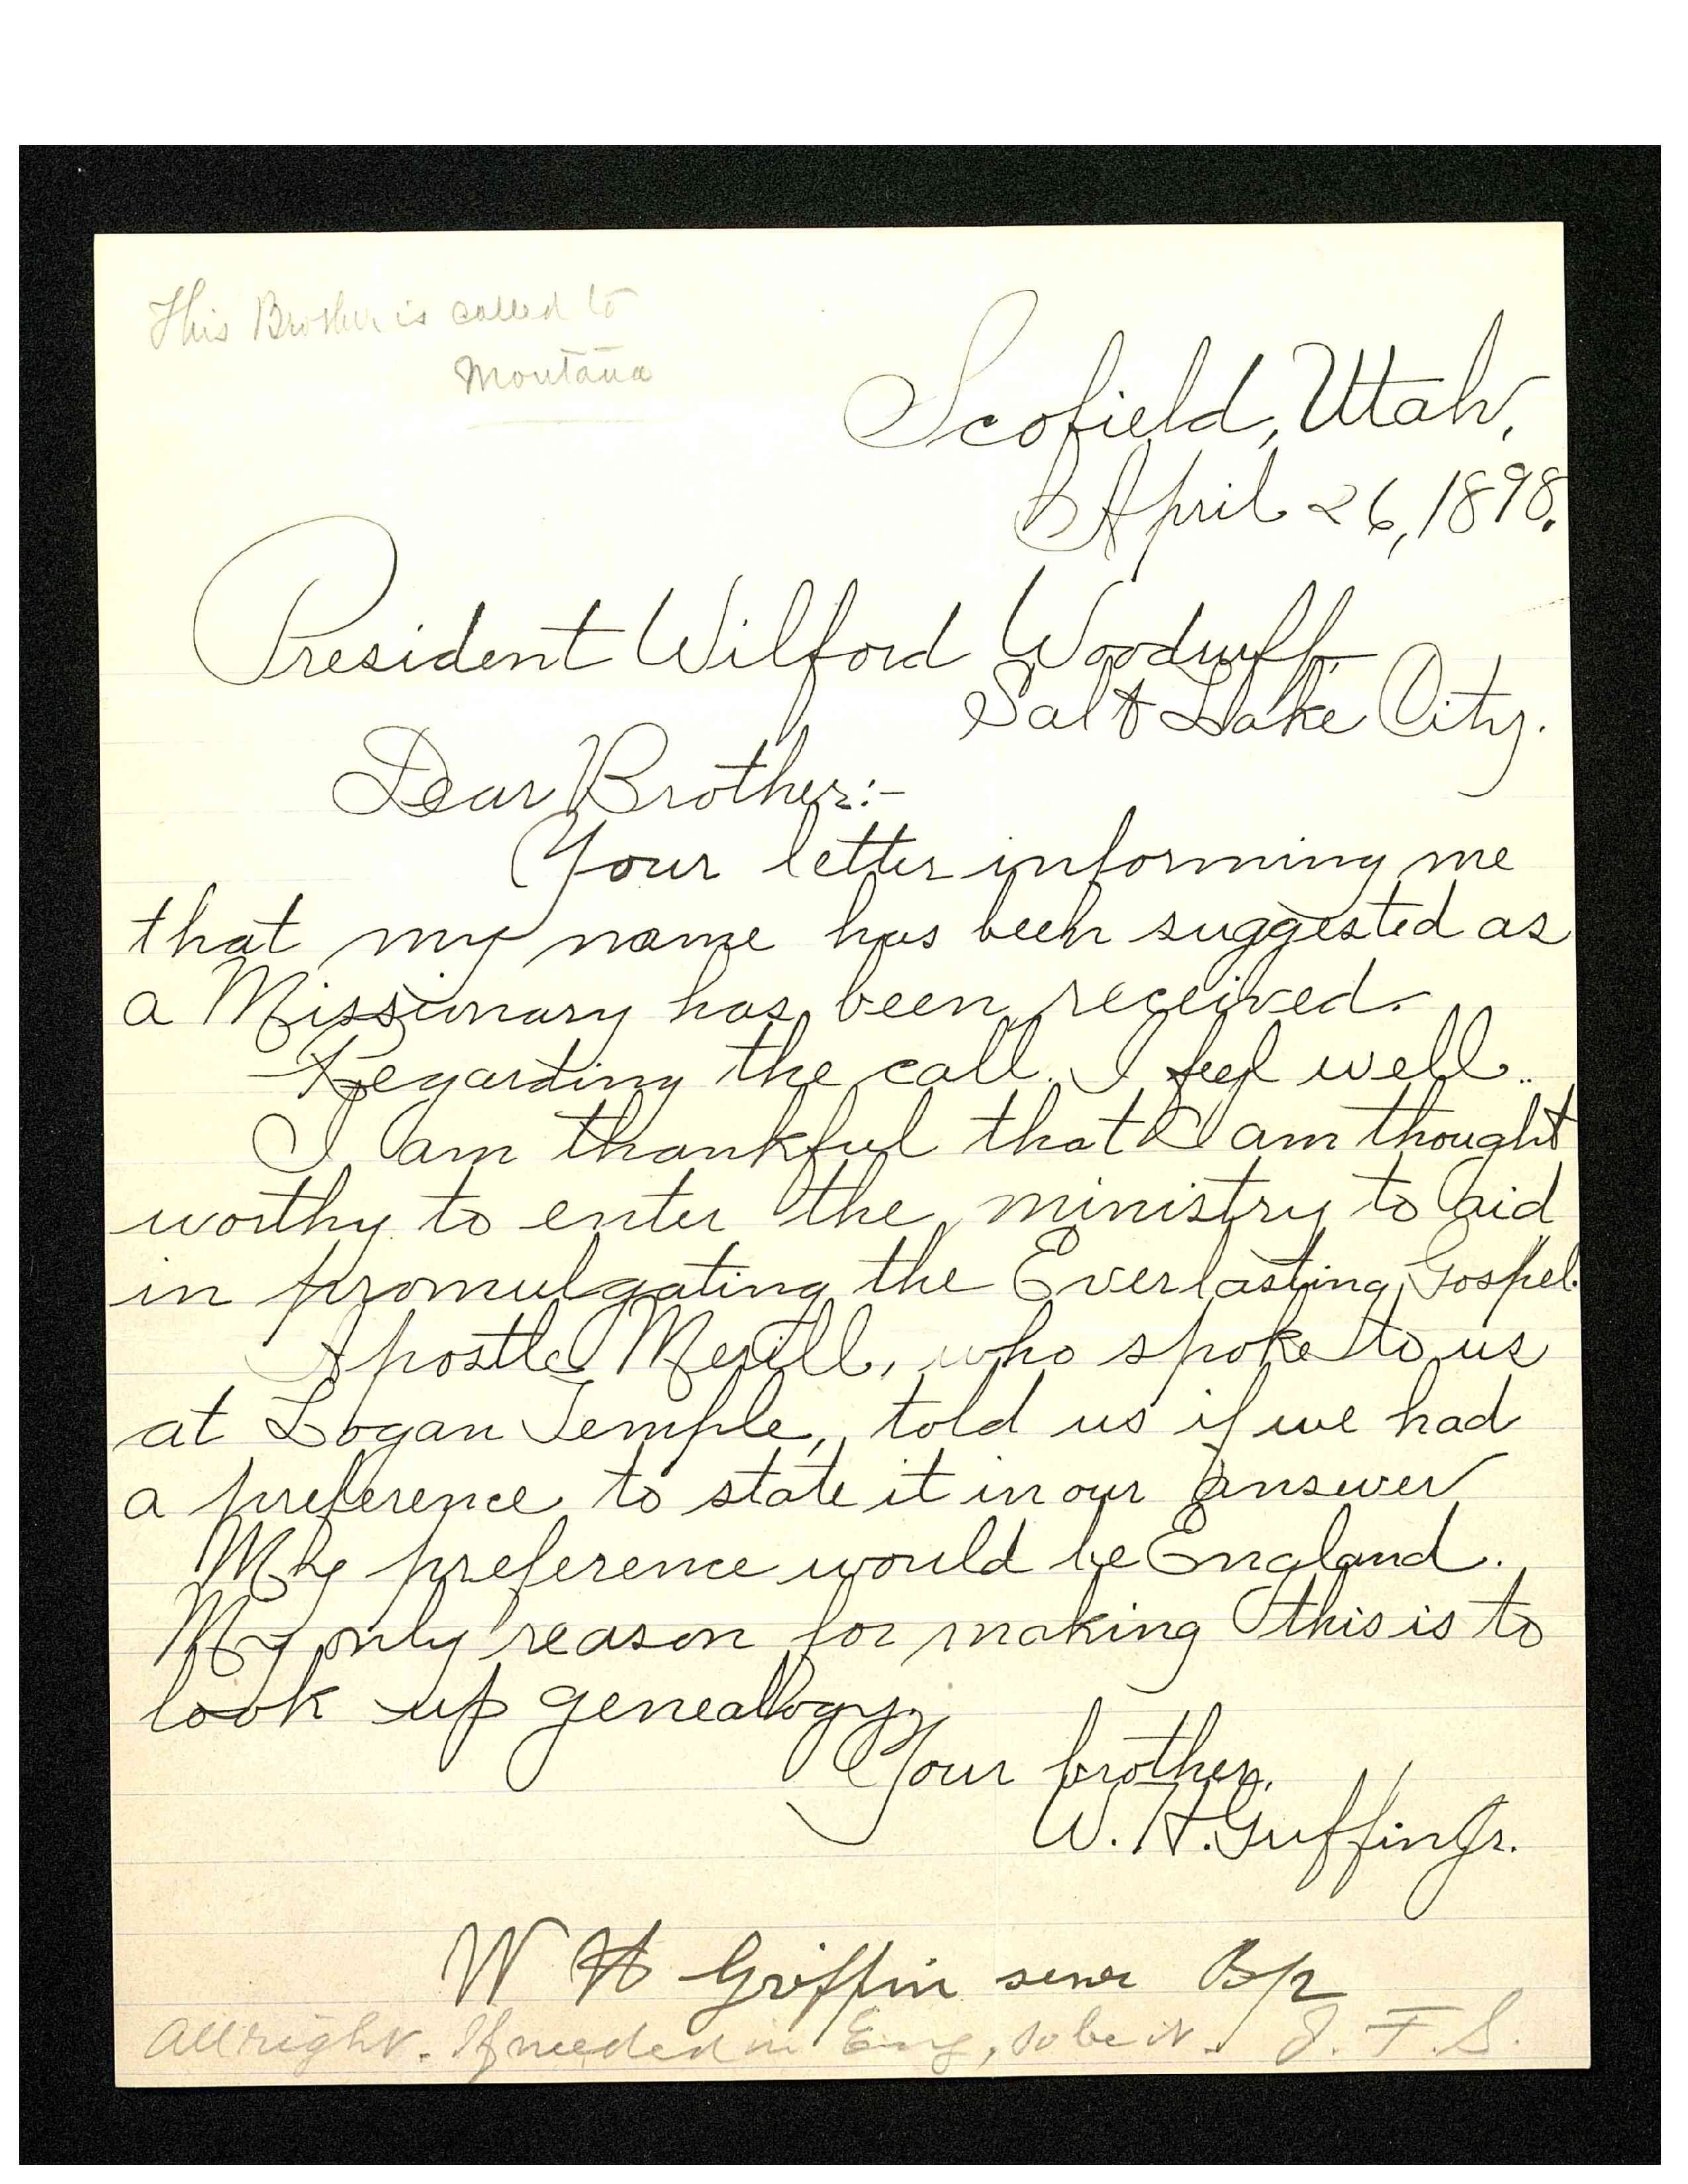 This Brother is called to
Montana
Scofield, Utah,
April 26, 1898.
President Wilford Woodruff,
Salt Lake City.
Dear Brother:-
Your letter informing me
that my name has been suggested as
a Missionary has been received.
Regarding the call I feel well.
I am thankful that I am thought
worthy to enter the ministry to aid
in promulgating the Everlasting Gospel.
Apostle Merill, who spoke to us
at Logan Temple, told us if we had
a preference to state it in our answer
My preference would be England.
My only reason for making this is to
look up genealogy.
Your brother,
W. H. Griffin Jr.
W H Griffin senr Bp
All right. If needed in Eng, so be it. J. F. S.